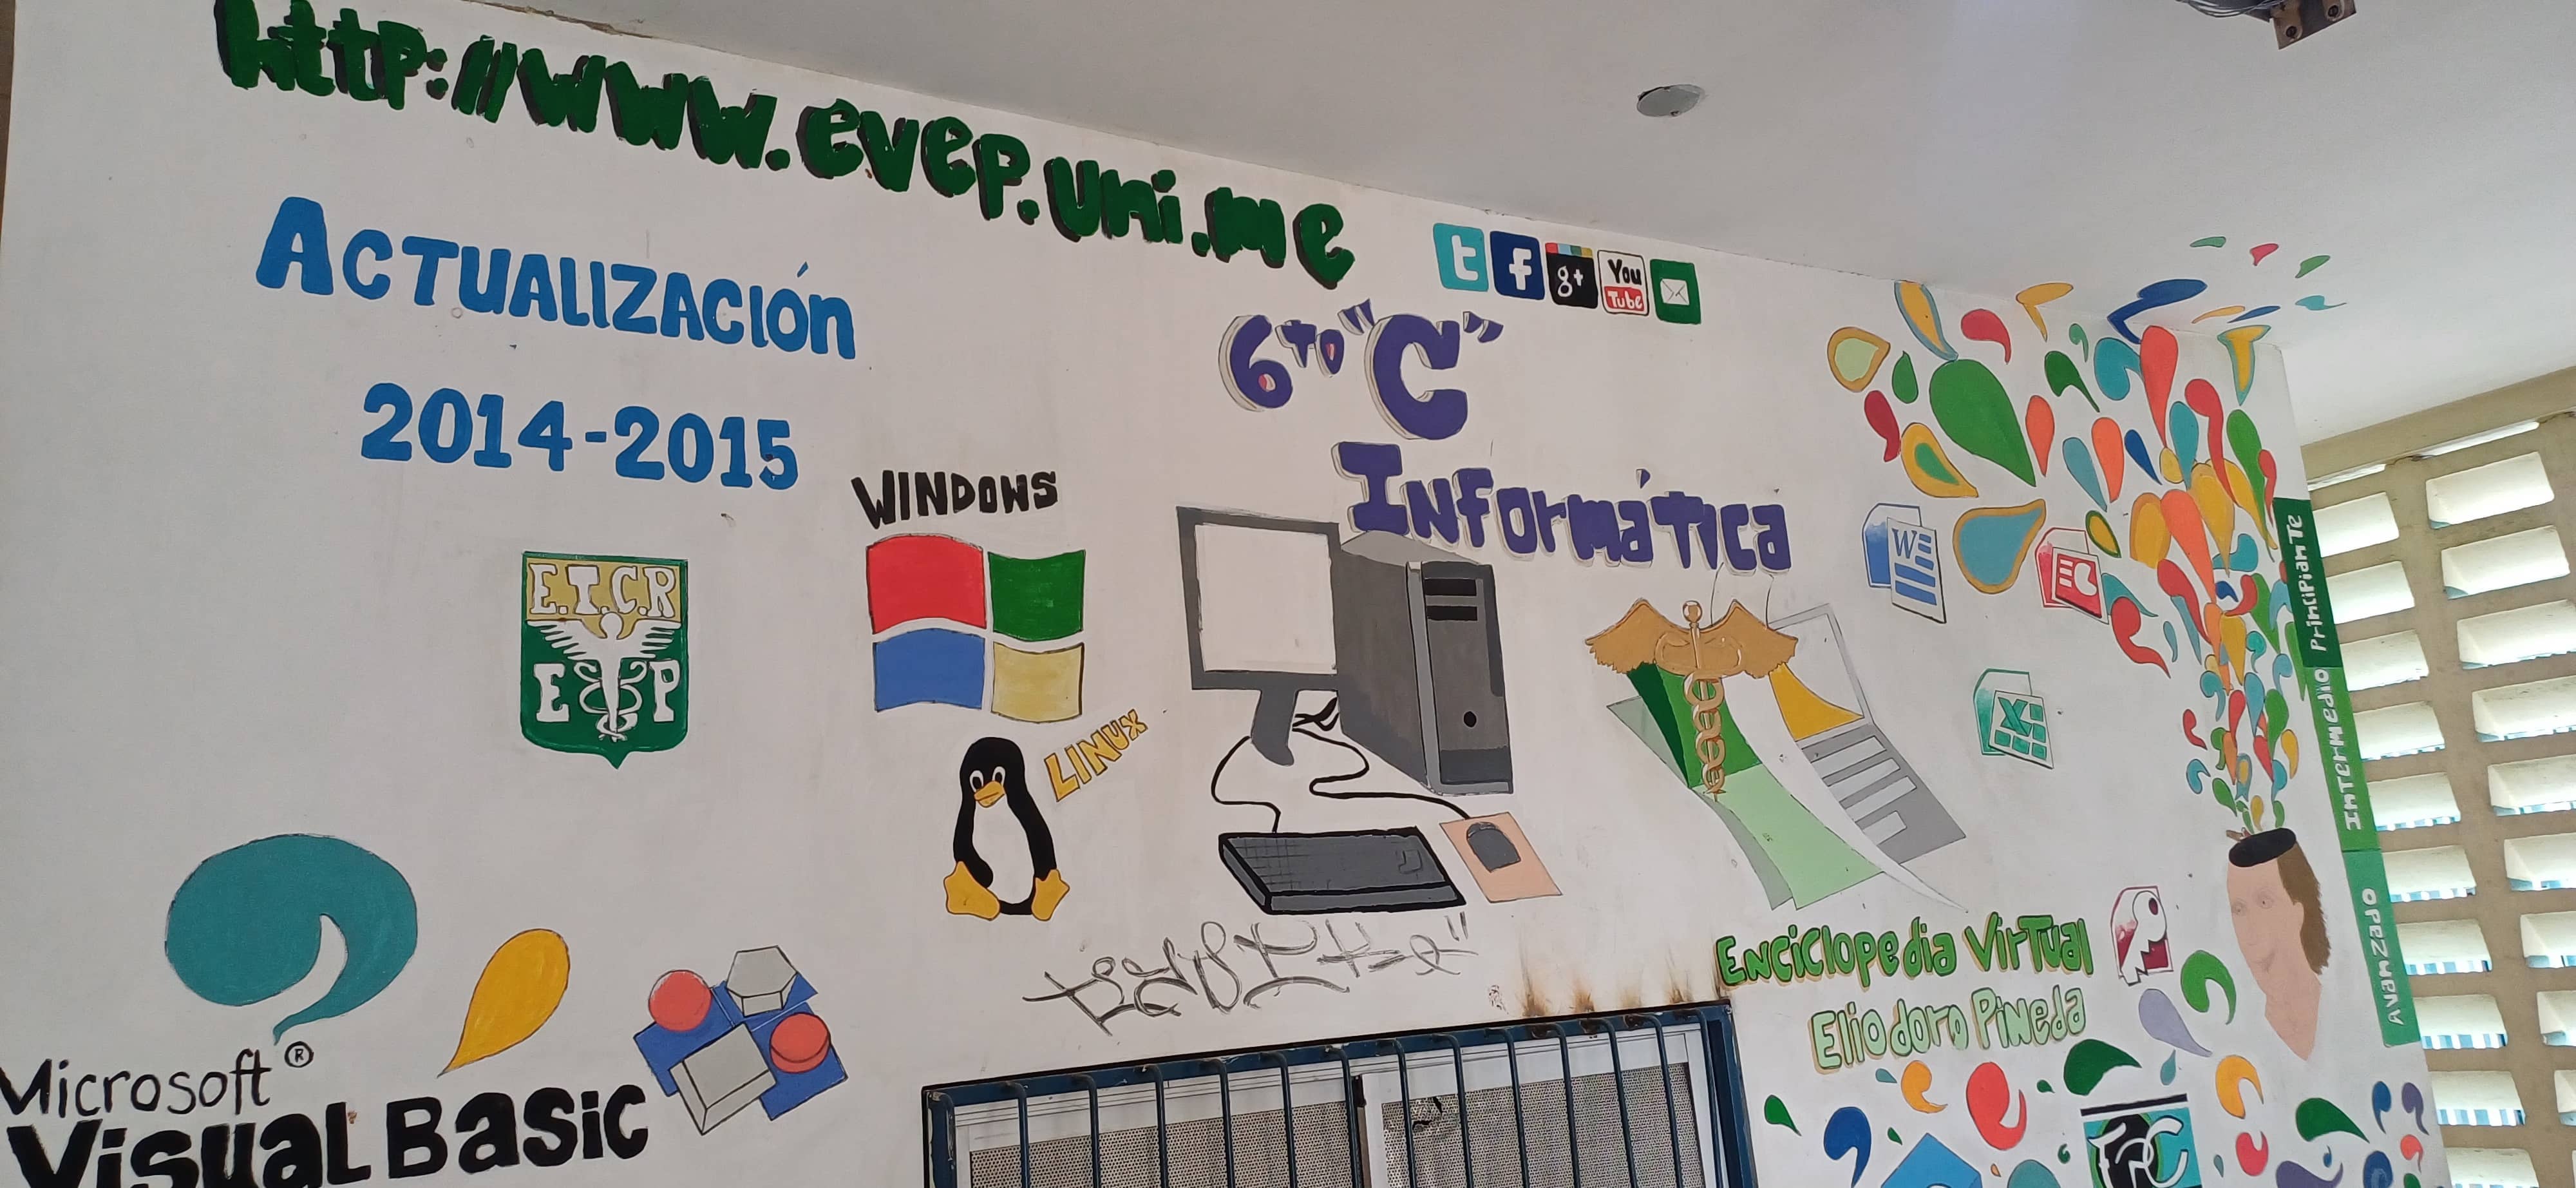 http://www.evep.uni.me
t f g+ You Tube
Actualización
2014-2015
6to "C"
Informática
WINDOWS
LINUX
E.T.C.R
E P
W
X
Principiante
Intermedio
Avanzado
Enciclopedia Virtual
Eliodoro Pineda
Microsoft ®
Visual Basic